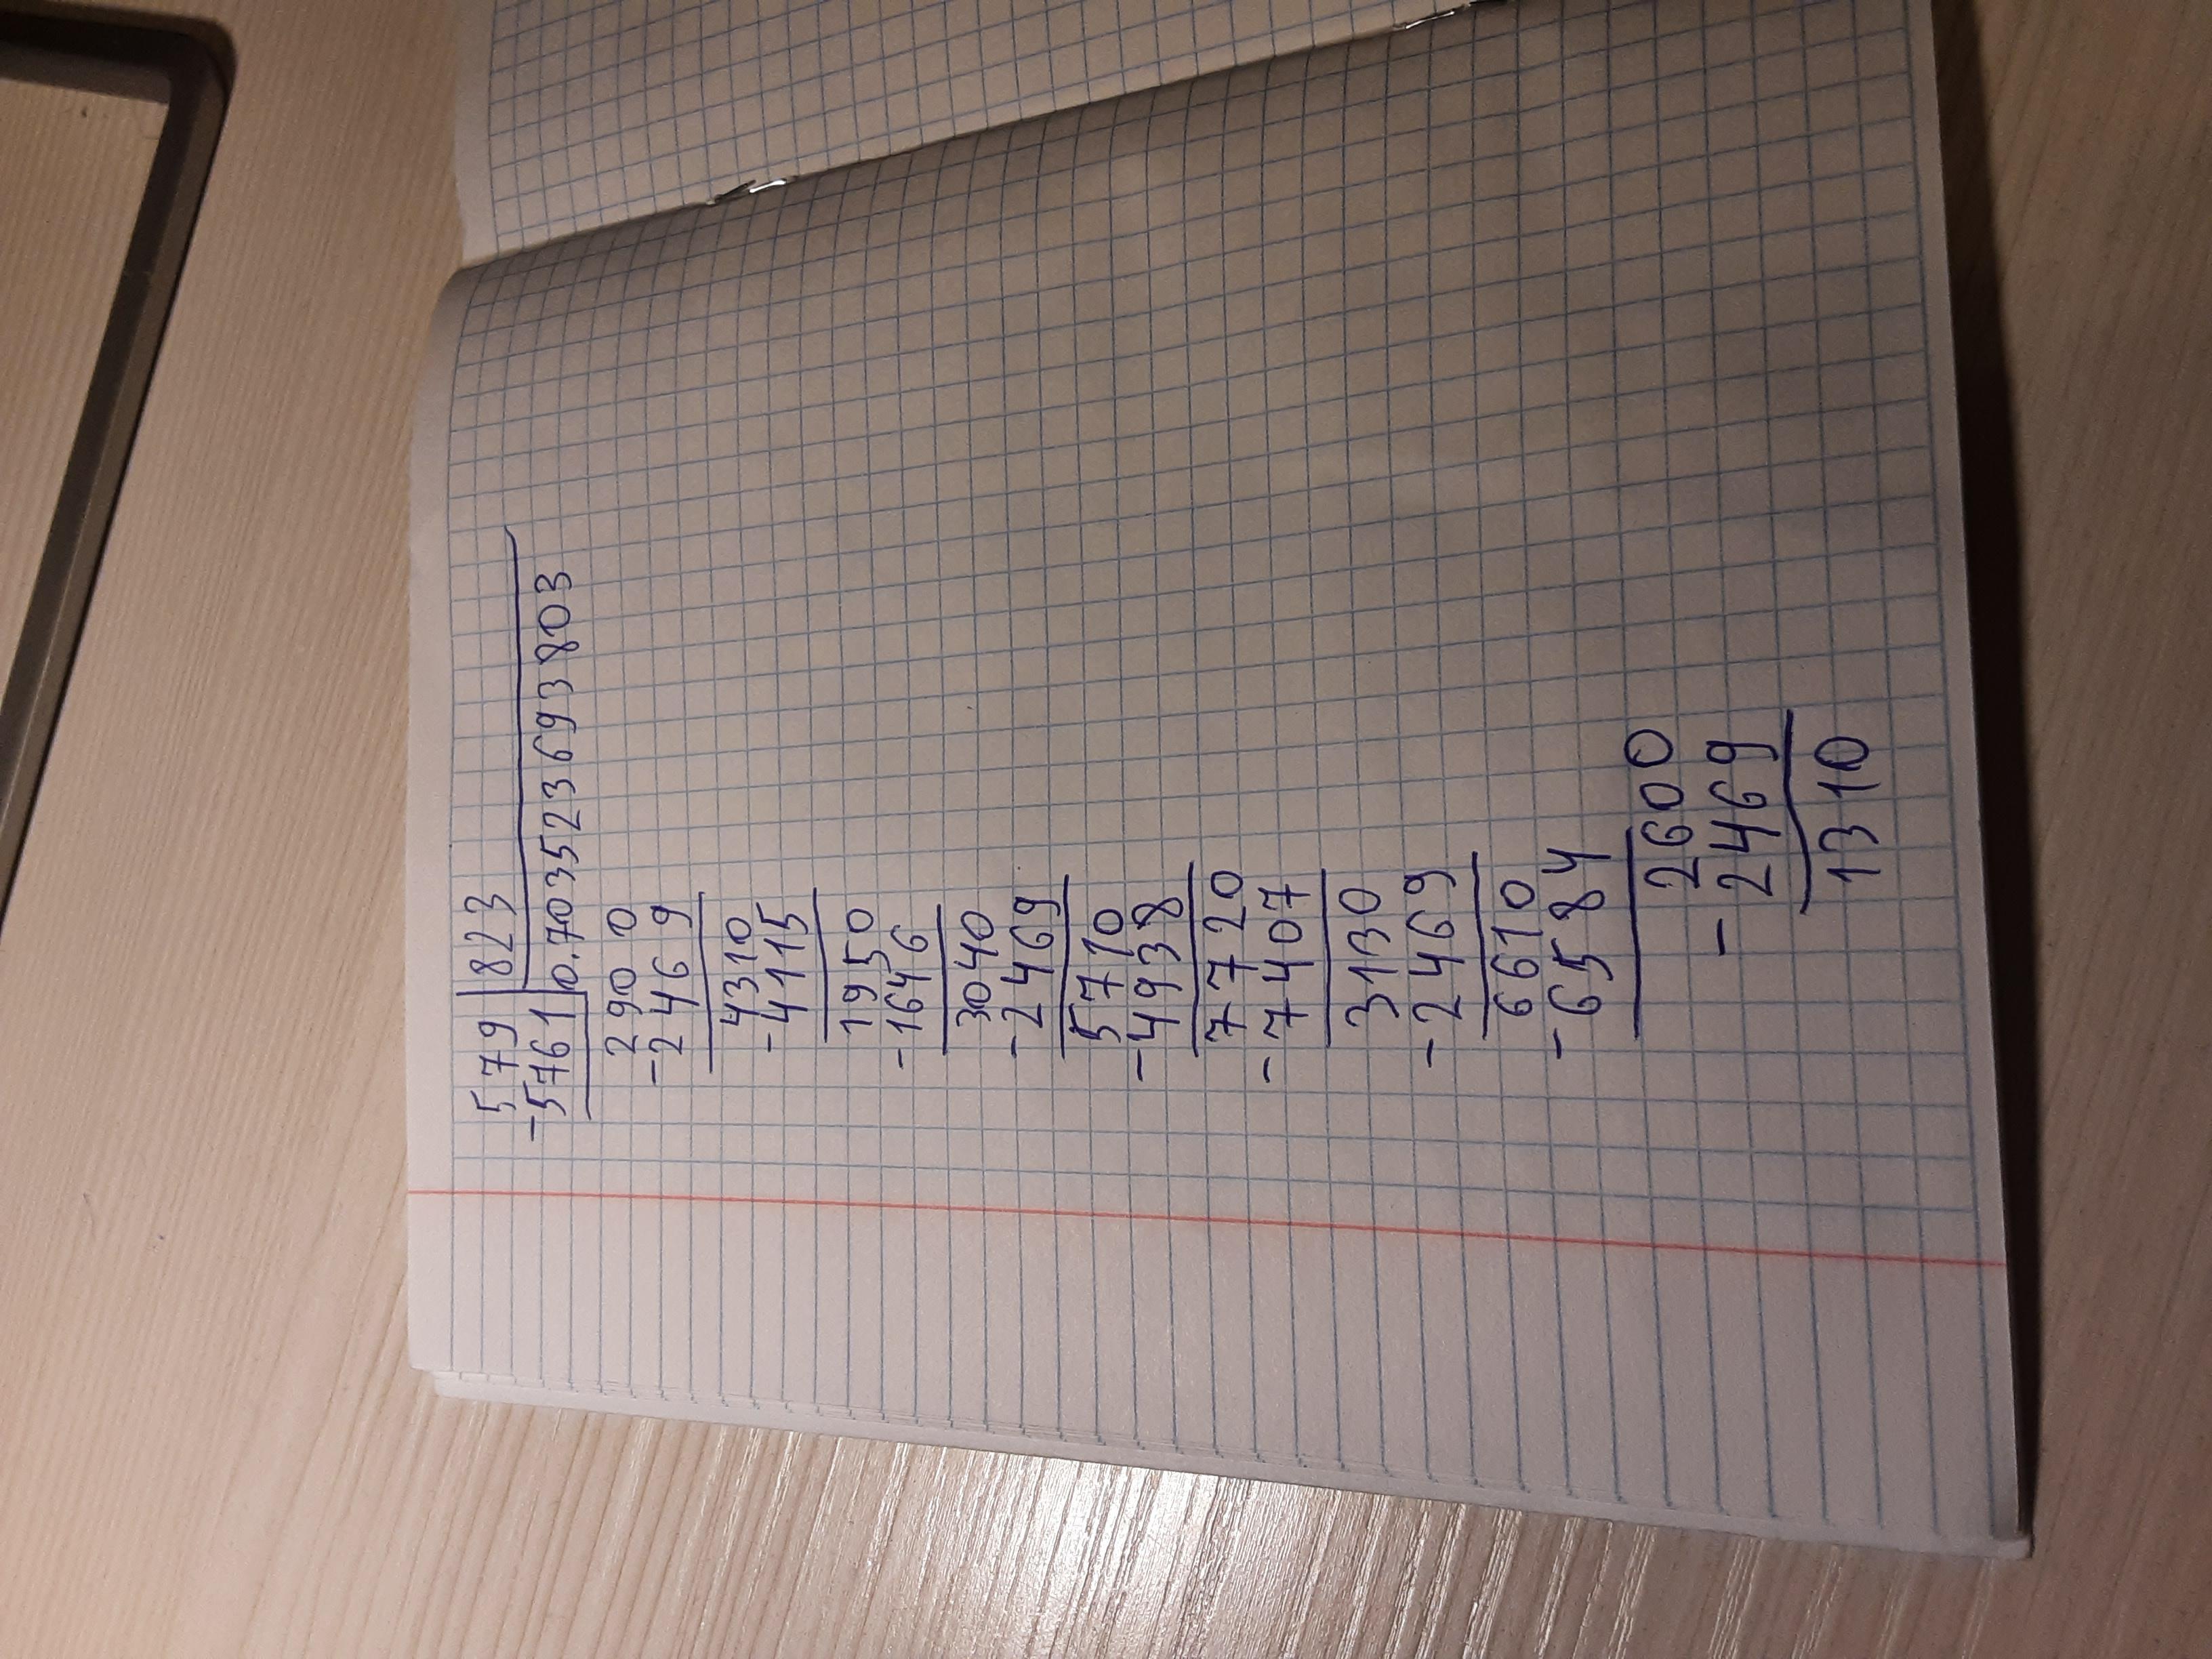 579 | 823
-5761 | 0.7035236938 03
2900
-2469
4310
-4115
1950
-1646
3040
-2469
5710
-4938
7720
-7407
3130
-2469
6610
-6584
2600
-2469
1310